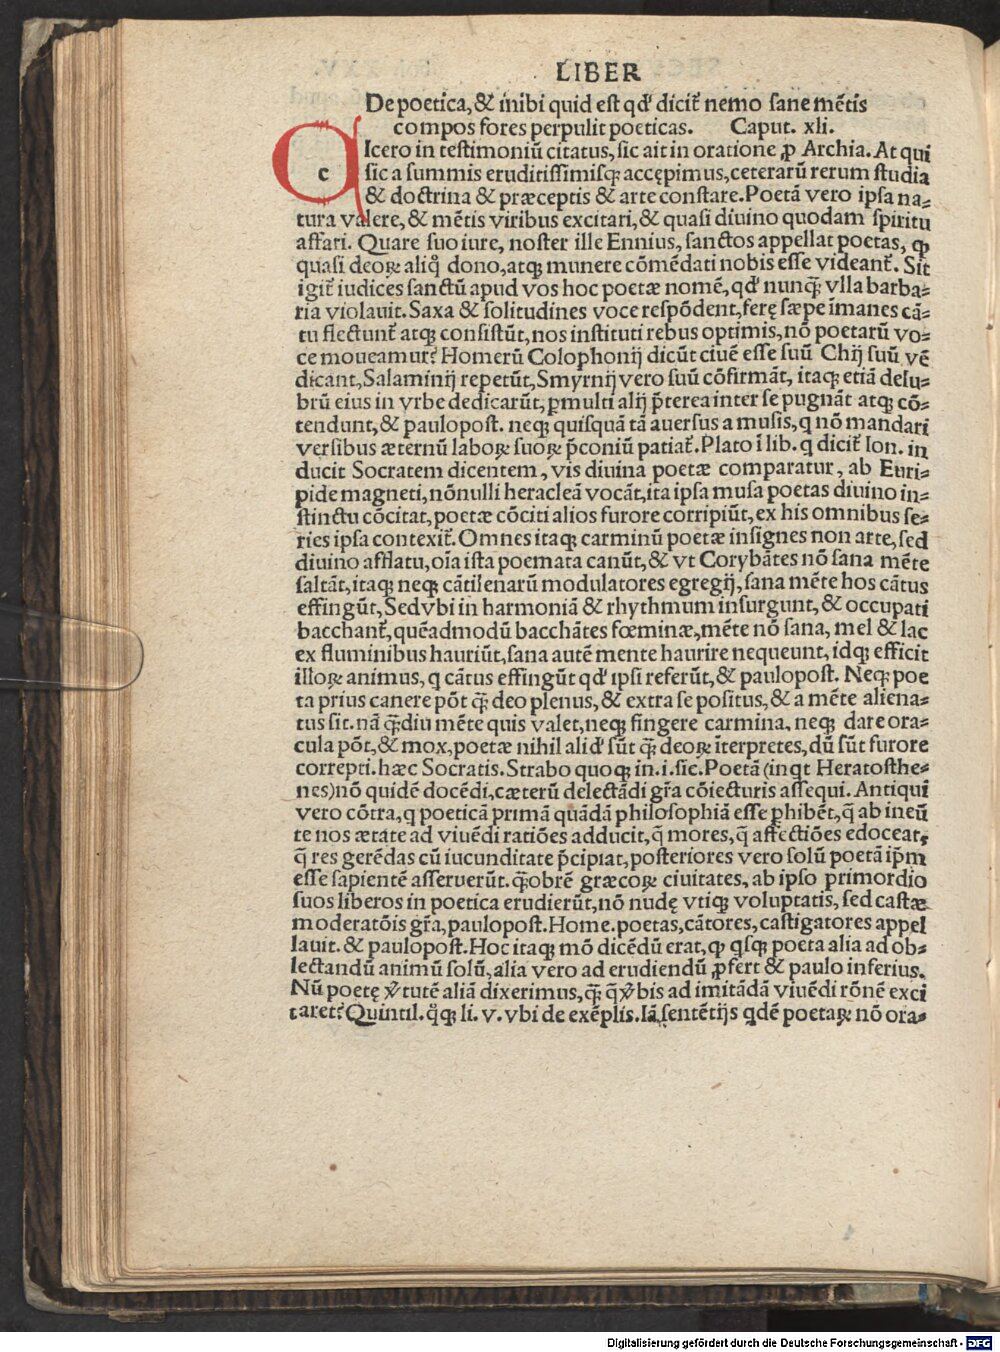 LIBER
De poetica, & inibi quid est qđ dicit̃ nemo sane mẽtis
compos fores perpulit poeticas. Caput. xli.
c
Icero in testimoniũ citatus, sic ait in oratione ꝓ Archia. At qui
sic a summis eruditissimisq; accępimus, ceterarũ rerum studia
& doctrina & præceptis & arte constare. Poetã vero ipsa na-
tura valere, & mẽtis viribus excitari, & quasi diuino quodam spiritu
affari. Quare suo iure, noster ille Ennius, sanctos appellat poetas, ꝙ
quasi deoꝝ aliq̊ dono, atq; munere cõmẽdati nobis esse videant̃. Sit
igit̃ iudices sanctũ apud vos hoc poetæ nomẽ, qđ nunq̃; vlla barba-
ria violauit. Saxa & solitudines voce respõdent, ferę sæpe ĩmanes cã-
tu flectunt̃ atq; consistũt, nos instituti rebus optimis, nõ poetarũ vo-
ce moueamur? Homerũ Colophonij dicũt ciuẽ esse suũ Chij suũ vẽ
dicant, Salaminij repetũt, Smyrnij vero suũ cõfirmãt, itaq; etiã delu-
brũ eius in vrbe dedicarũt, ꝑmulti alij p̃terea inter se pugnãt atq; cõ-
tendunt, & paulopost. neq; quisquã tã auersus a musis, q nõ mandari
versibus æternũ laboꝝ suoꝝ p̃coniũ patiat̃. Plato ĩ lib. q dicit̃ Ion. in
ducit Socratem dicentem, vis diuina poetæ comparatur, ab Euri-
pide magneti, nõnulli heracleã vocãt, ita ipsa musa poetas diuino in-
stinctu cõcitat, poetæ cõciti alios furore corripiũt, ex his omnibus se-
ries ipsa contexit̃. Omnes itaq; carminũ poetæ insignes non arte, sed
diuino afflatu, oĩa ista poemata canũt, & vt Corybãtes nõ sana mẽte
saltãt, itaq; neq; cãtilenarũ modulatores egregij, sana mẽte hos cãtus
effingũt, Sed vbi in harmoniã & rhythmum insurgunt, & occupati
bacchant̃, quẽadmodũ bacchãtes fœminæ, mẽte nõ sana, mel & lac
ex fluminibus hauriũt, sana autẽ mente haurire nequeunt, idq; efficit
illoꝝ animus, q cãtus effingũt qđ ipsi referũt, & paulopost. Neq; poe
ta prius canere põt q̃; deo plenus, & extra se positus, & a mẽte aliena-
tus sit. nã q̃;diu mẽte quis valet, neq; fingere carmina, neq; dare ora-
cula põt, & mox, poetæ nihil aliđ sũt q̃; deoꝝ ĩterpretes, dũ sũt furore
correpti. hæc Socratis. Strabo quoq; in. i. sic. Poetã (inqt Heratosthe-
nes) nõ quidẽ docẽdi, cæterũ delectãdi gr̃a cõiecturis assequi. Antiqui
vero cõtra, q poeticã primã quãdã philosophiã esse ꝑhibẽt, q̃ ab ineũ
te nos ætate ad viuẽdi ratiões adducit, q̃ mores, q̃ affectiões edoceat,
q̃ res gerẽdas cũ iucunditate p̃cipiat, posteriores vero solũ poetã ip̃m
esse sapientẽ asseruerũt. q̃;obrẽ græcoꝝ ciuitates, ab ipso primordio
suos liberos in poetica erudierũt, nõ nudę vtiq; voluptatis, sed castæ
moderatõis gr̃a, paulopost. Home. poetas, cãtores, castigatores appel
lauit. & paulopost. Hoc itaq; mõ dicẽdũ erat, ꝙ qsq; poeta alia ad ob-
lectandũ animũ solũ, alia vero ad erudiendũ ꝓfert & paulo inferius.
Nũ poetę v̾tutẽ aliã dixerimus, q̃; q̃ v̾bis ad imitãdã viuẽdi rõnẽ exci
taret? Quintil. q̊q; li. v. vbi de exẽplis. Iã sentẽtijs qdẽ poetaꝝ nõ ora-
Digitalisierung gefördert durch die Deutsche Forschungsgemeinschaft - DFG